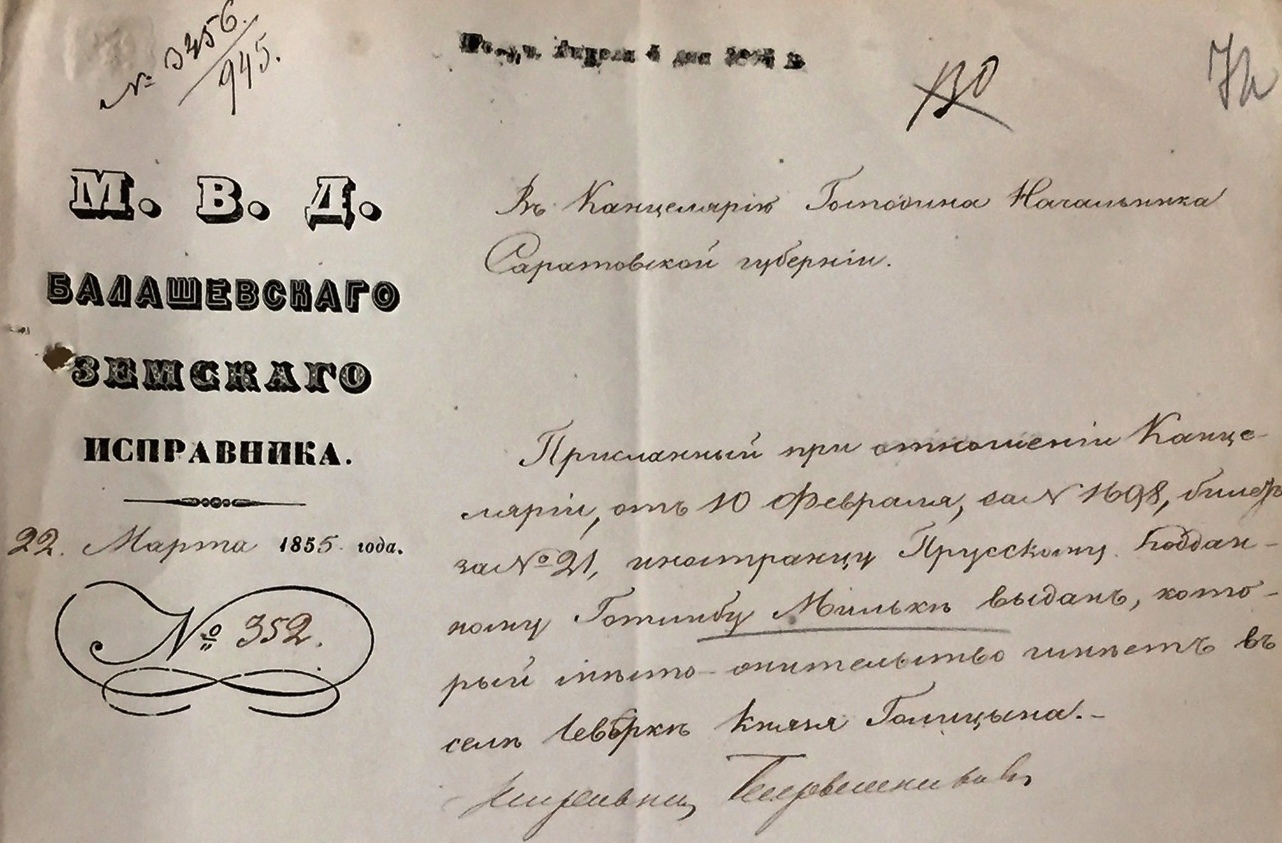 № 3456/945.
Апреля 4 дня
72
М. В. Д.
БАЛАШЕВСКАГО
ЗЕМСКАГО
ИСПРАВНИКА.
22. Марта 1855 года.
№ 352.
Въ Канцелярію Господина Начальника
Саратовской губерніи.
Присланный при отношеніи Канце-
ляріи, отъ 10 Февраля, за № 1698, билетъ
за № 21, иностранцу Прусскому Поддан-
ному Готлибу Мильке выданъ, кото-
рый мѣсто-жительство имѣетъ въ
селѣ Князя Голицына.-
Исправникъ